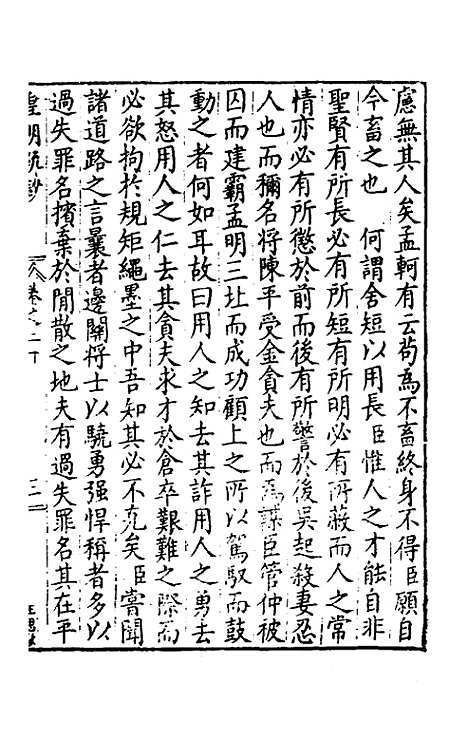 慮無其人矣孟軻有云苟為不畜終身不得臣願自
今畜之也　何謂舍短以用長臣惟人之才能自非
聖賢有所長必有所短有所明必有所蔽而人之常
情亦必有所懲於前而後有所警於後吳起殺妻忍
人也而稱名將陳平受金貪夫也而為謀臣管仲被
囚而建霸孟明三北而成功顧上之所以駕馭而鼓
動之者何如耳故曰用人之知去其詐用人之勇去
其怒用人之仁去其貪夫求才於倉卒艱難之際而
必欲拘於規矩繩墨之中吾知其必不克矣臣嘗聞
諸道路之言曩者邊關將士以驍勇强悍稱者多以
過失罪名擯棄於閒散之地夫有過失罪名其在平
皇明疏鈔　卷之二十